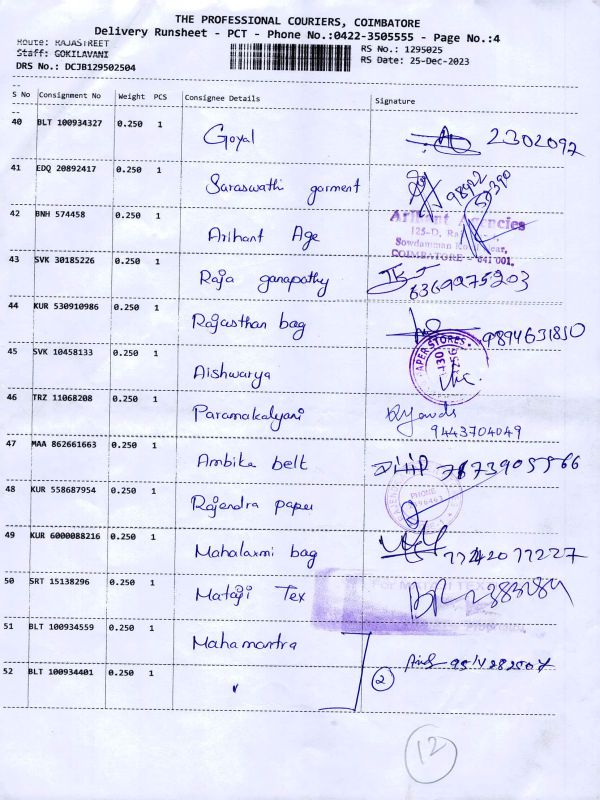 THE PROFESSIONAL COURIERS, COIMBATORE
Delivery Runsheet - PCT - Phone No.:0422-3505555 - Page No.:4
Route: RAJASTREET
Staff: GOKILAVANI
RS No.: 1295025
DRS No.: DCJB129502504
RS Date: 25-Dec-2023
S No Consignment No Weight PCS Consignee Details Signature
40 BLT 100934327 0.250 1 Goyal 2302092
41 EDQ 20892417 0.250 1 Saraswathi garment
42 BNH 574458 0.250 1 Arihant Age
Arihant Agencies
125-D,
Sowdamman
COIMBATORE 641 001.
43 SVK 30185226 0.250 1 Raja ganapathy 6369275203
44 KUR 530910986 0.250 1 Rajasthan bag 9894631850
45 SVK 10458133 0.250 1 Aishwarya
46 TRZ 11068208 0.250 1 Paramakalyani
9443704049
47 MAA 862661663 0.250 1 Ambika belt
48 KUR 558687954 0.250 1 Rajendra paper
PHONE
49 KUR 6000088216 0.250 1 Mahalaxmi bag
50 SRT 15138296 0.250 1 Mataji Tex
51 BLT 100934559 0.250 1 Mahamantra
52 BLT 100934401 0.250 1 "
2
12